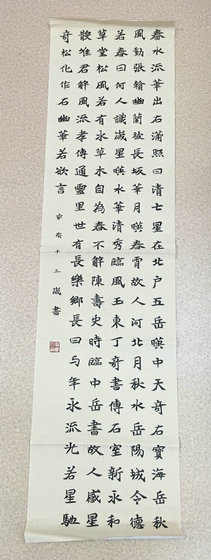 春水派華出石瀟照曰清七星在北戶五岳暎中天奇石寶海岳秋
風勁張翰幽蘭放長坂華月暎春霄故人河北月秋水岳陽城令德
若春曰何人識歲星暎水華清秀臨風玉東丁奇書傳石室新永和
草堂松風若有永草木自為春不解陳壽史時臨中岳書故人感星
散唯君解風派孝傳通靈里世有長樂鄉長曰与年永派光若星馳
奇松化作石幽華若欲言 十三歲書